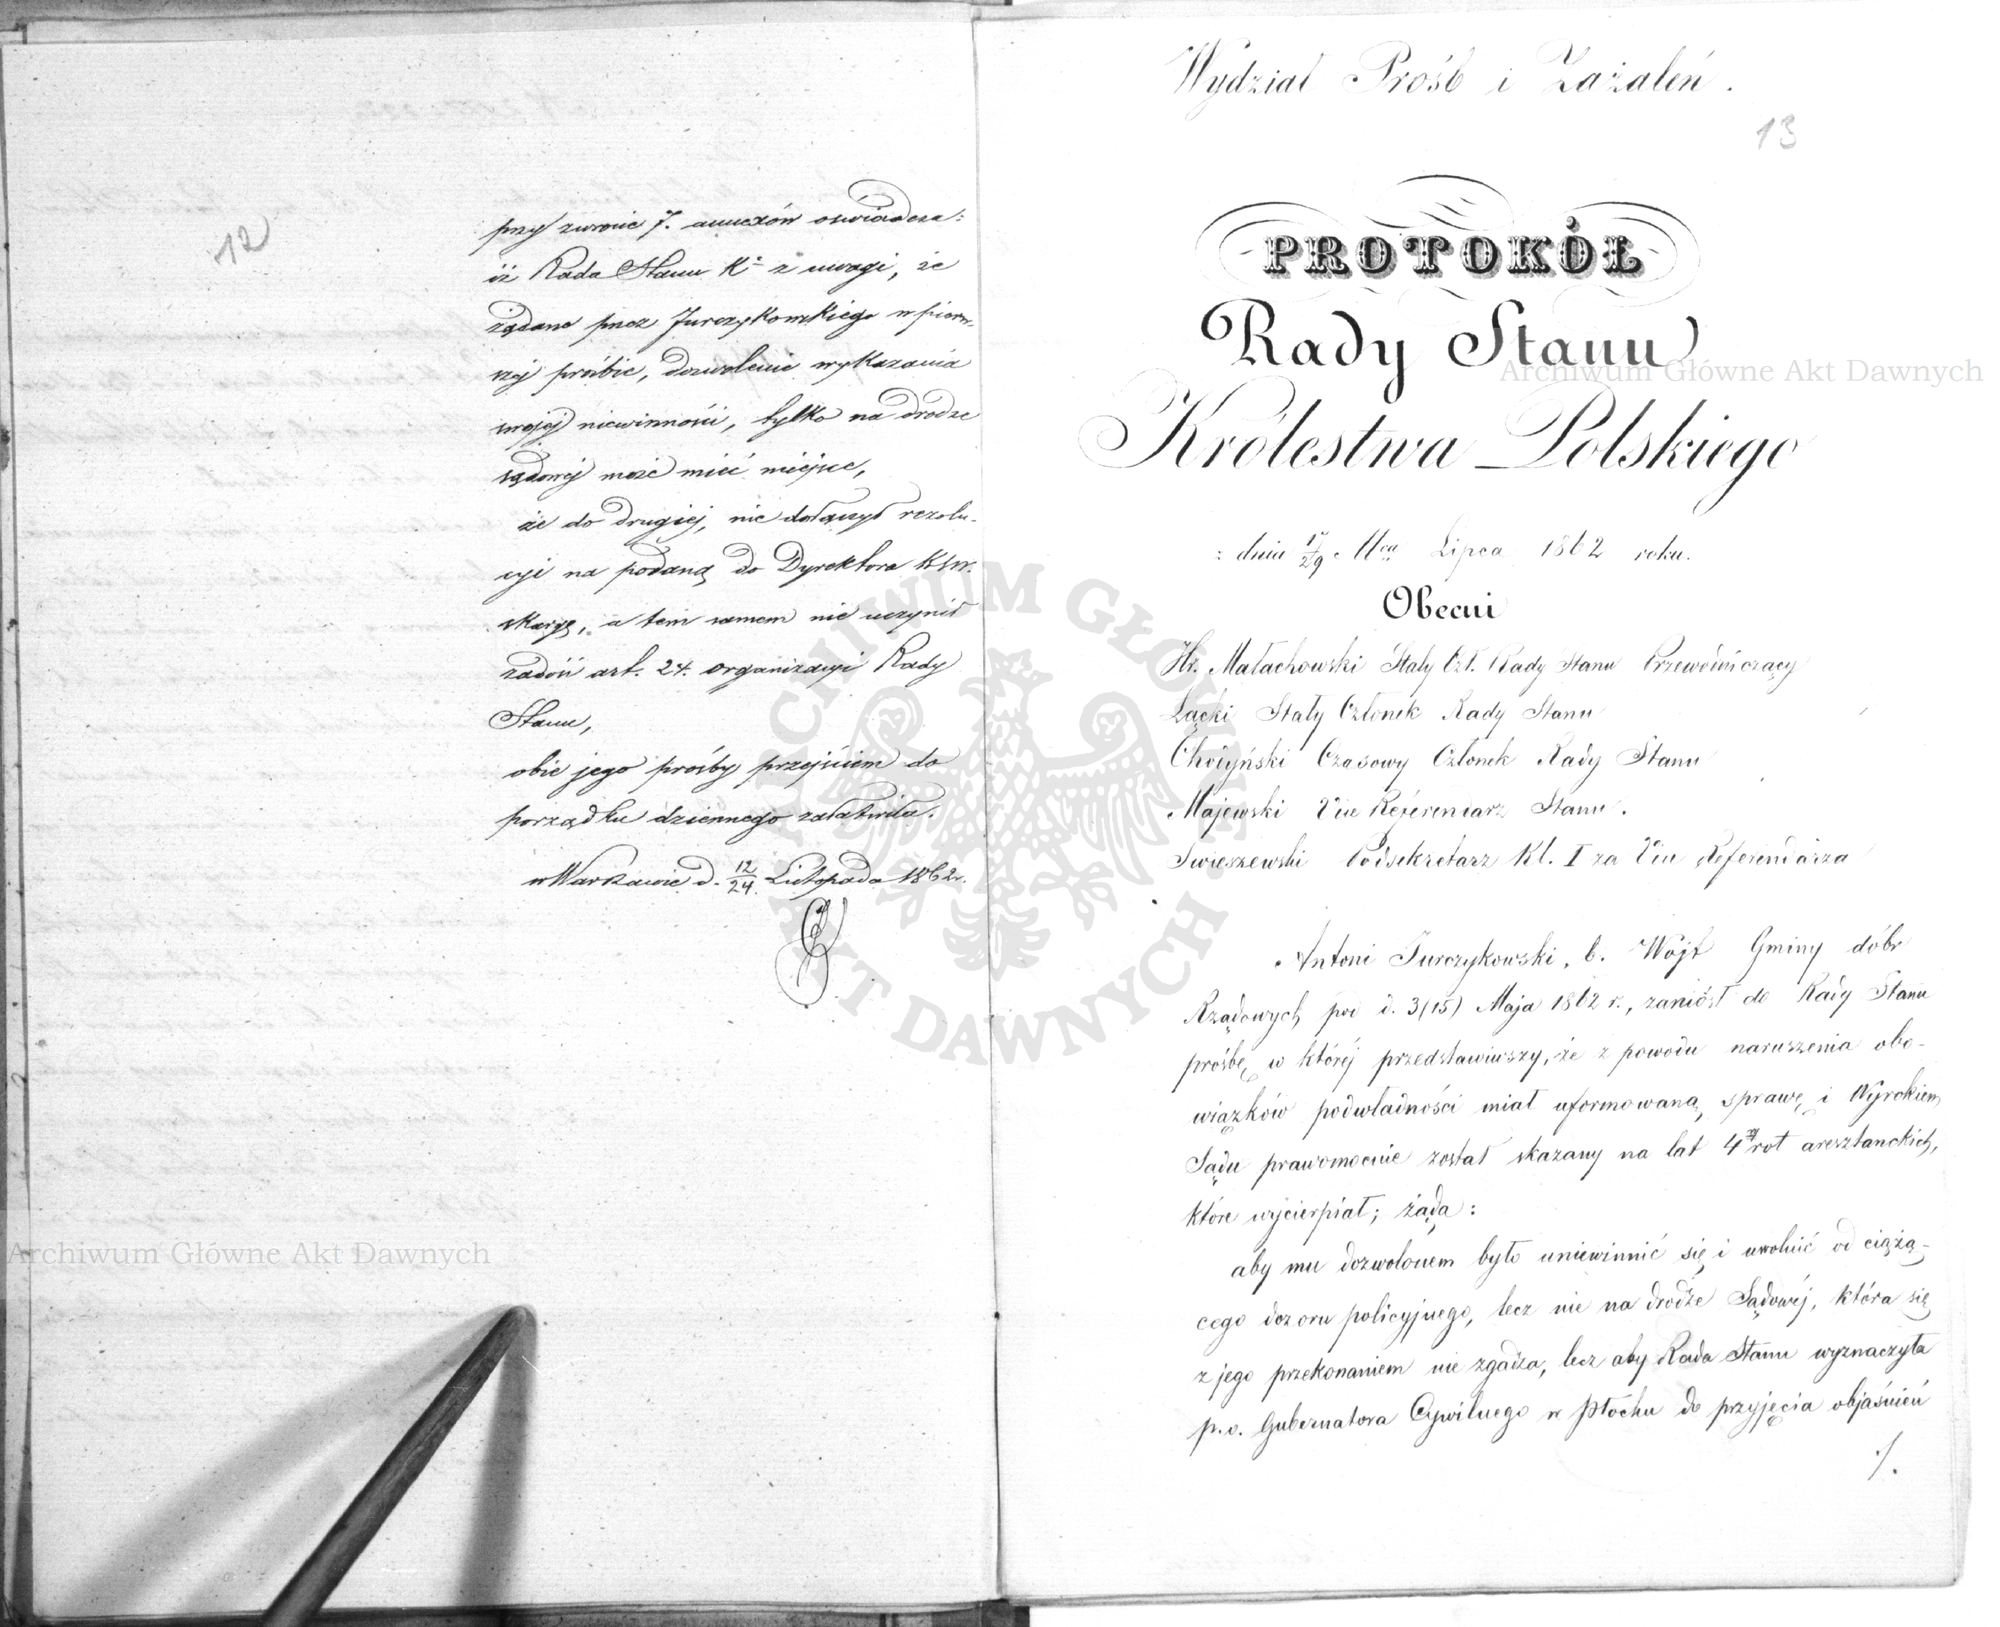 12
przy zwrocie 7. annexów oświadcza:
iż Rada Stanu K. z uwagi, że
żądane przez Jurczykowskiego w pierw-
szej prośbie, dozwolenie wykazania
swojej niewinności, tylko na drodze
sądowej może mieć miejsce,
że do drugiej, nie dołączył rezolu-
cyi na podaną do Dyrektora KSW.
skargę, a tem samem nie uczynił
zadość art. 24. organizacyi Rady
Stanu,
obie jego prośby przejściem do
porządku dziennego załatwiła.
w Warszawie d. 12/24. Listopada 1862 r.
Wydział Prośb i Zażaleń.
13
PROTOKÓŁ
Rady Stanu
Królestwa Polskiego
z dnia 17/29 Mca Lipca 1862 roku.
Obecni
Hr. Małachowski Stały Czł. Rady Stanu Przewodniczący
Łącki Stały Członek Rady Stanu
Chołyński Czasowy Członek Rady Stanu
Majewski Vice Referendarz Stanu.
Swieszewski Podsekretarz Kl. I za Vice Referendarza
Antoni Jurczykowski, b. Wójt Gminy dóbr
Rządowych pod d. 3/15) Maja 1862 r., zaniósł do Rady Stanu
prośbę, w której przedstawiwszy, że z powodu naruszenia obo-
wiązków podwładności miał uformowaną sprawę i Wyrokiem
Sądu prawomocnie został skazany na lat 4 rot aresztanckich,
które wycierpiał; żąda:
aby mu dozwolonem było uniewinnić się i uwolnić od ciążą-
cego dozoru policyjnego, lecz nie na drodze Sądowej, która się
z jego przekonaniem nie zgadza, lecz aby Rada Stanu wyznaczyła
p.o. Gubernatora Cywilnego w Płocku do przyjęcia objaśnień
./.
Archiwum Główne Akt Dawnych
Archiwum Główne Akt Dawnych
ARCHIWUM GŁÓWNE AKT DAWNYCH